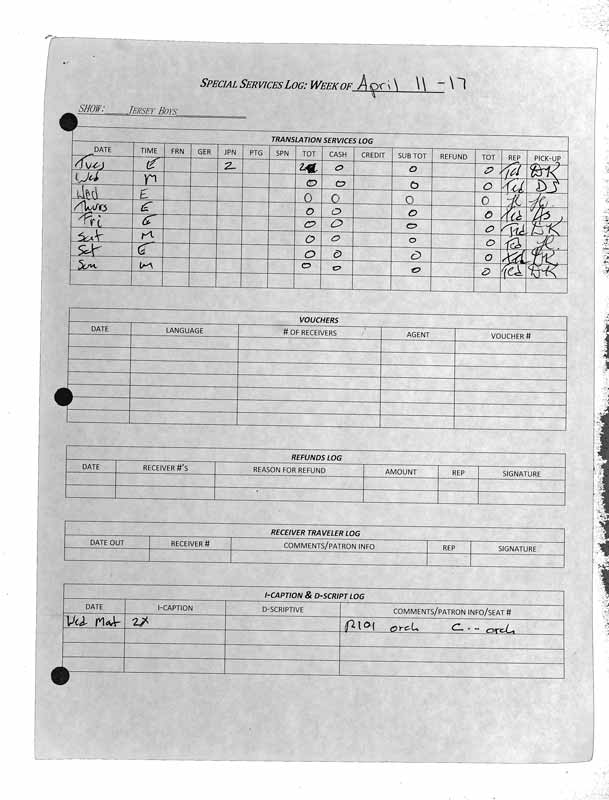 SPECIAL SERVICES LOG: WEEK OF April 11 - 17
SHOW: JERSEY BOYS
TRANSLATION SERVICES LOG
DATE TIME FRN GER JPN PTG SPN TOT CASH CREDIT SUB TOT REFUND TOT REP PICK-UP
Tues E 2 2 0 0 0 Ted DK
Wed M 0 0 0 0 Ted DS
Wed E 0 0 0 0
Thurs E 0 0 0 0 Ted
Fri E 0 0 0 0 Ted DK
Sat M 0 0 0 0 Ted
Sat E 0 0 0 0 Ted DK
Sun M 0 0 0 0 Ted DK
VOUCHERS
DATE LANGUAGE # OF RECEIVERS AGENT VOUCHER #
REFUNDS LOG
DATE RECEIVER #'S REASON FOR REFUND AMOUNT REP SIGNATURE
RECEIVER TRAVELER LOG
DATE OUT RECEIVER # COMMENTS/PATRON INFO REP SIGNATURE
I-CAPTION & D-SCRIPT LOG
DATE I-CAPTION D-SCRIPTIVE COMMENTS/PATRON INFO/SEAT #
Wed Mat 2X R101 orch C-- orch